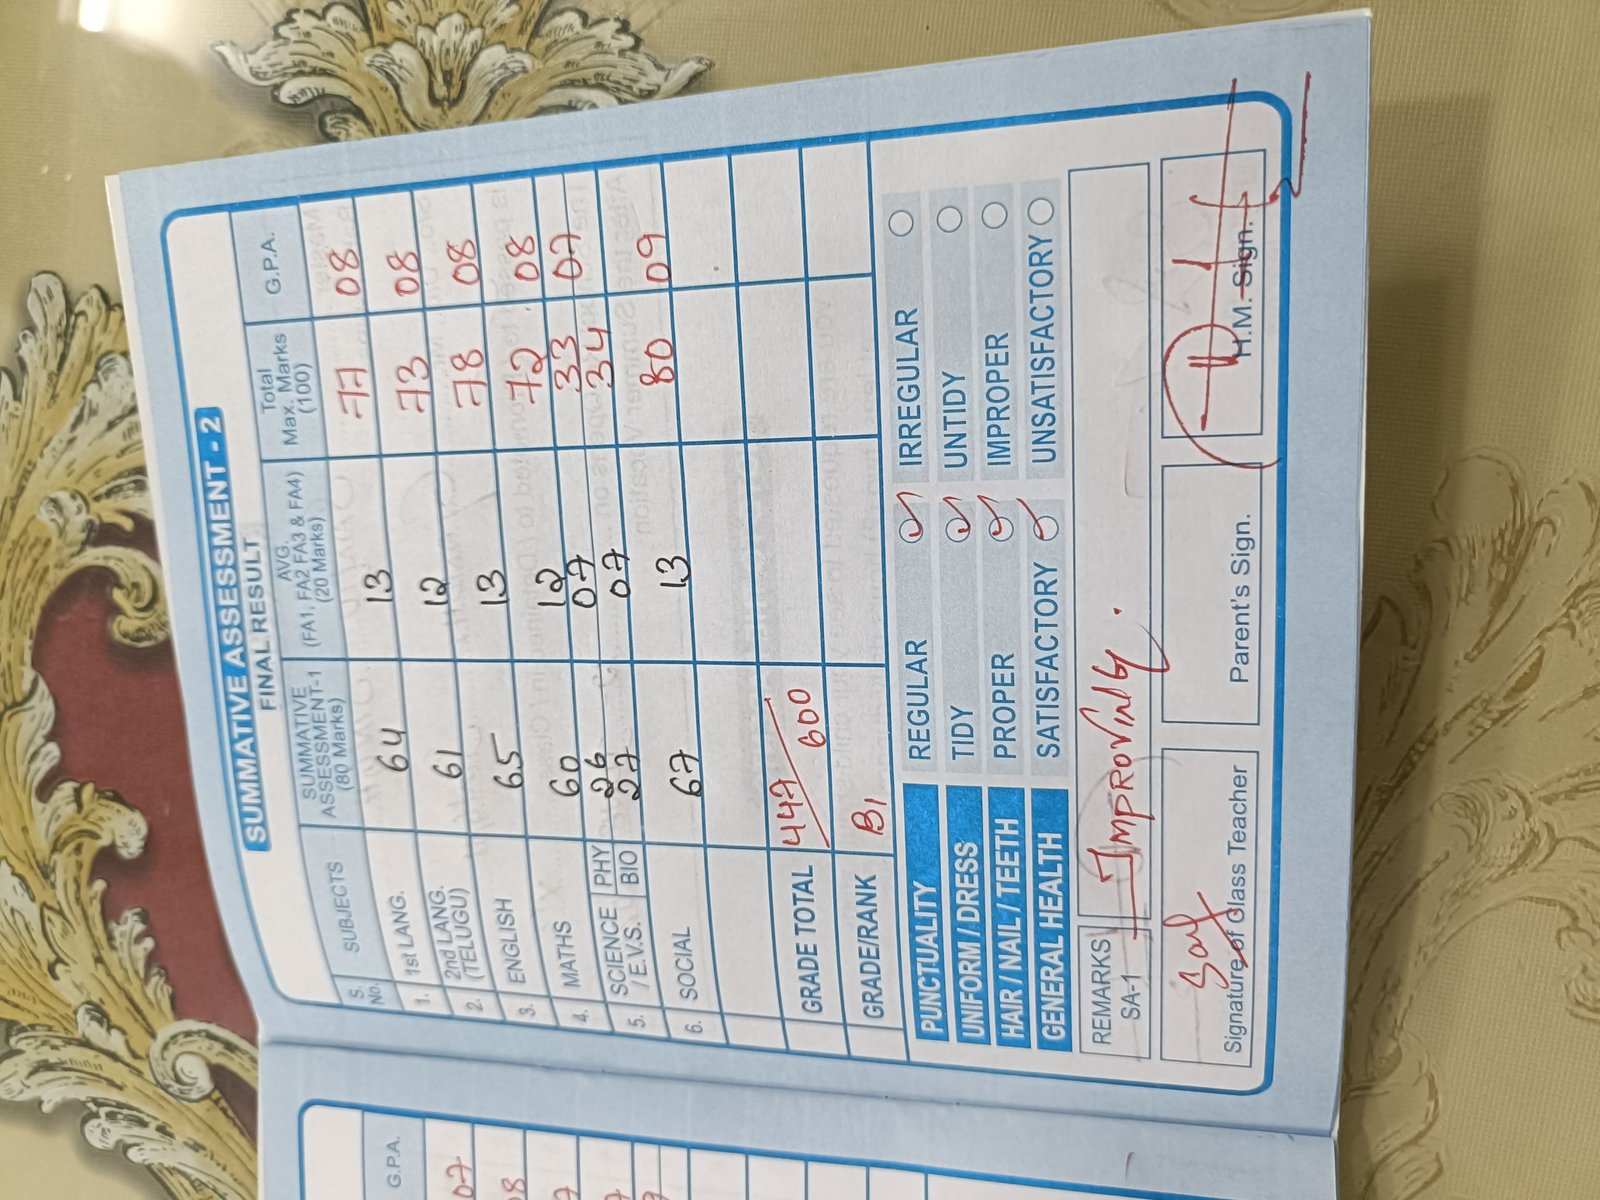 SUMMATIVE ASSESSMENT - 2
FINAL RESULT
S. No. SUBJECTS SUMMATIVE ASSESSMENT-1 (80 Marks) AVG. (FA1, FA2 FA3 & FA4) (20 Marks) Total Max. Marks (100) G.P.A.
1. 1st LANG. 64 13 77 08
2. 2nd LANG. (TELUGU) 61 12 73 08
3. ENGLISH 65 13 78 08
4. MATHS 60 12 72 08
5. SCIENCE / E.V.S. PHY 26 07 33 07
BIO 27 07 34
6. SOCIAL 67 13 80 09
GRADE TOTAL 447 600
GRADE/RANK B1
PUNCTUALITY REGULAR IRREGULAR
UNIFORM / DRESS TIDY UNTIDY
HAIR / NAIL / TEETH PROPER IMPROPER
GENERAL HEALTH SATISFACTORY UNSATISFACTORY
REMARKS SA-1 Improving.
Signature of Class Teacher Parent's Sign. H.M. Sign.
G.P.A.
07
08